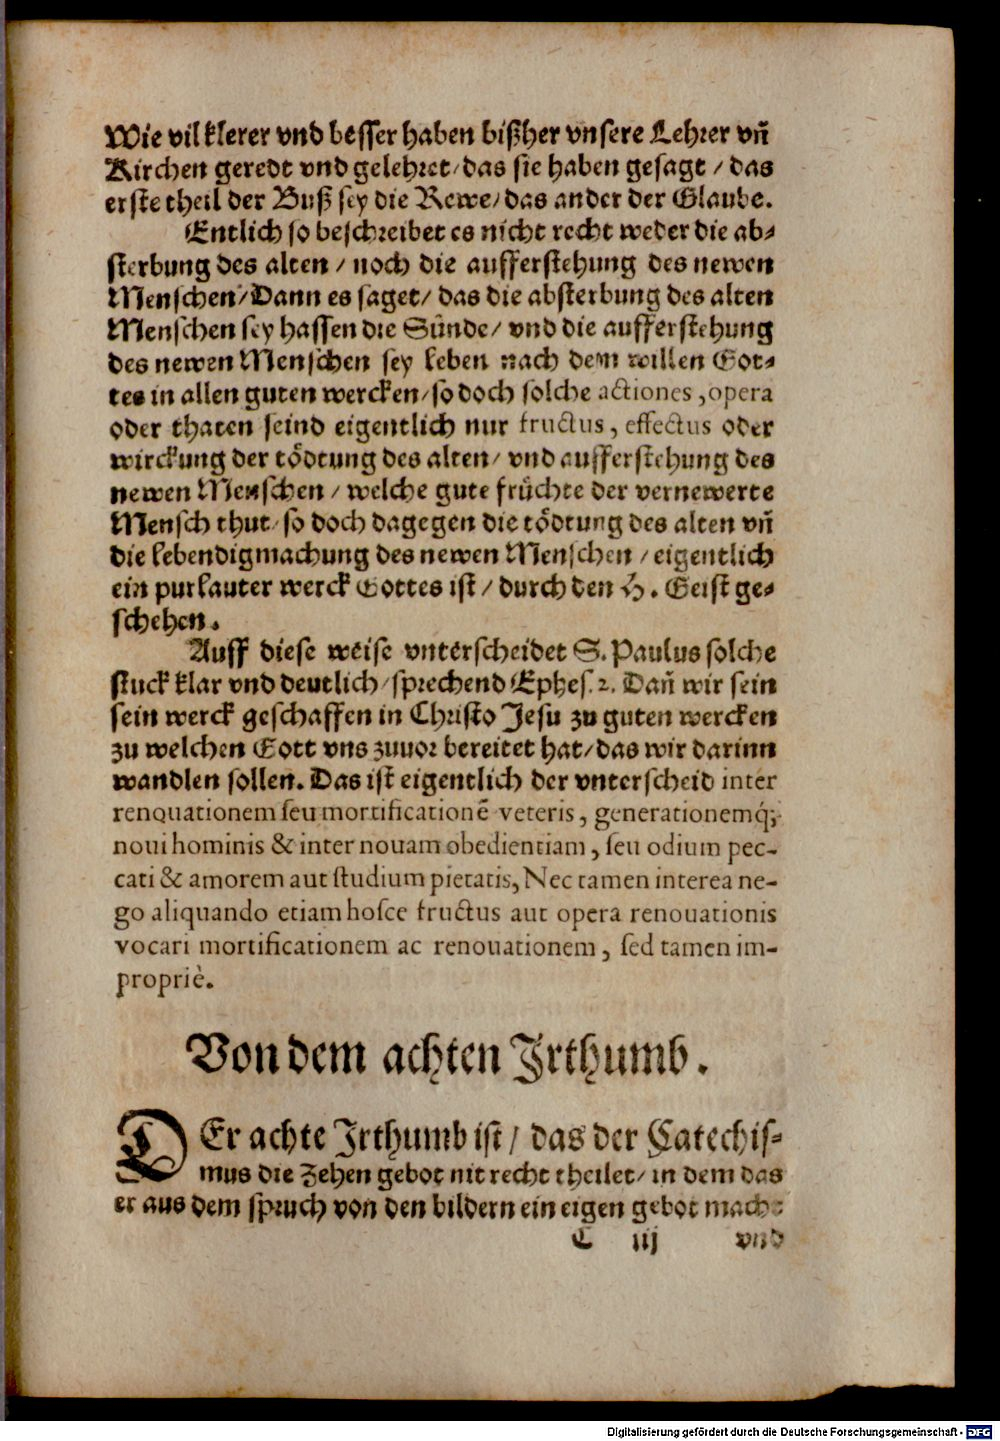 Wie vil klerer vnd besser haben bißher vnsere Lehrer vñ
Kirchen geredt vnd gelehret/das sie haben gesagt / das
erste theil der Buß sey die Rewe/das ander der Glaube.
Entlich so beschreibet es nicht recht weder die ab⸗
sterbung des alten / noch die aufferstehung des newen
Menschen/Dann es saget/ das die absterbung des alten
Menschen sey hassen die Sünde/ vnd die aufferstehung
des newen Menschen sey leben nach dem willen Got⸗
tes in allen guten wercken/so doch solche actiones , opera
oder thaten seind eigentlich nur fructus , effectus oder
wirckung der tödtung des alten/ vnd aufferstehung des
newen Menschen / welche gute früchte der vernewerte
Mensch thut/ so doch dagegen die tödtung des alten vñ
die lebendigmachung des newen Menschen / eigentlich
ein pur lauter werck Gottes ist / durch den H. Geist ge⸗
schehen.
Auff diese weise vnterscheidet S. Paulus solche
stuck klar vnd deutlich/sprechend Ephes. 2. Dañ wir sein
sein werck geschaffen in Christo Jesu zu guten wercken
zu welchen Gott vns zuuor bereitet hat/das wir darinn
wandlen sollen. Das ist eigentlich der vnterscheid inter
renouationem seu mortificationẽ veteris, generationemq́;
noui hominis & inter nouam obedientiam , seu odium pec-
cati & amorem aut studium pietatis, Nec tamen interea ne-
go aliquando etiam hosce fructus aut opera renouationis
vocari mortificationem ac renouationem , sed tamen im-
propriè.
Von dem achten Jrthumb.
DEr achte Jrthumb ist / das der Catechis⸗
mus die Zehen gebot nit recht theilet/ in dem das
er aus dem spruch von den bildern ein eigen gebot mach⸗
C iij vnd
Digitalisierung gefördert durch die Deutsche Forschungsgemeinschaft - DFG